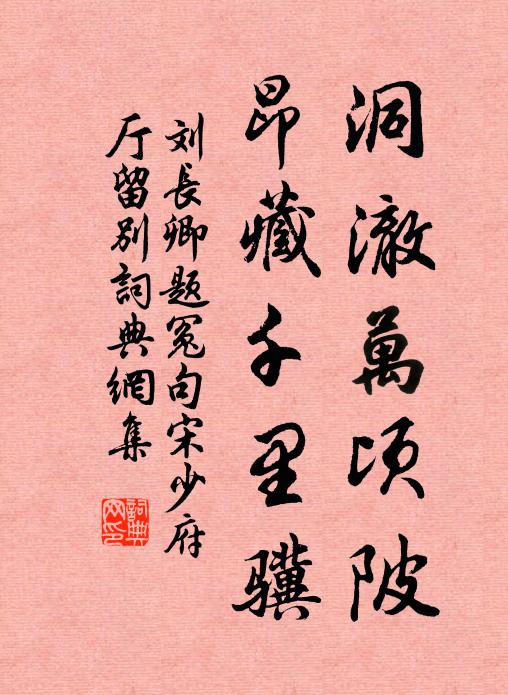 洞澈萬頃陂
昂藏千里驥
刘長卿題冤句宋少府
厅留别詞典網集
詞典网印